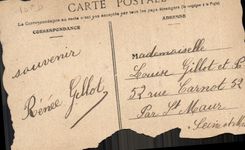 CARTE POSTALE
La Correspondance au recto n'est pas acceptée par tous les pays étrangers (Se renseigner à la Poste)
CORRESPONDANCE
ADRESSE
souvenir
Renée Gillot
Mademoiselle
Louise Gillot et
52 rue Carnot 52
Par St Maur
Seine et